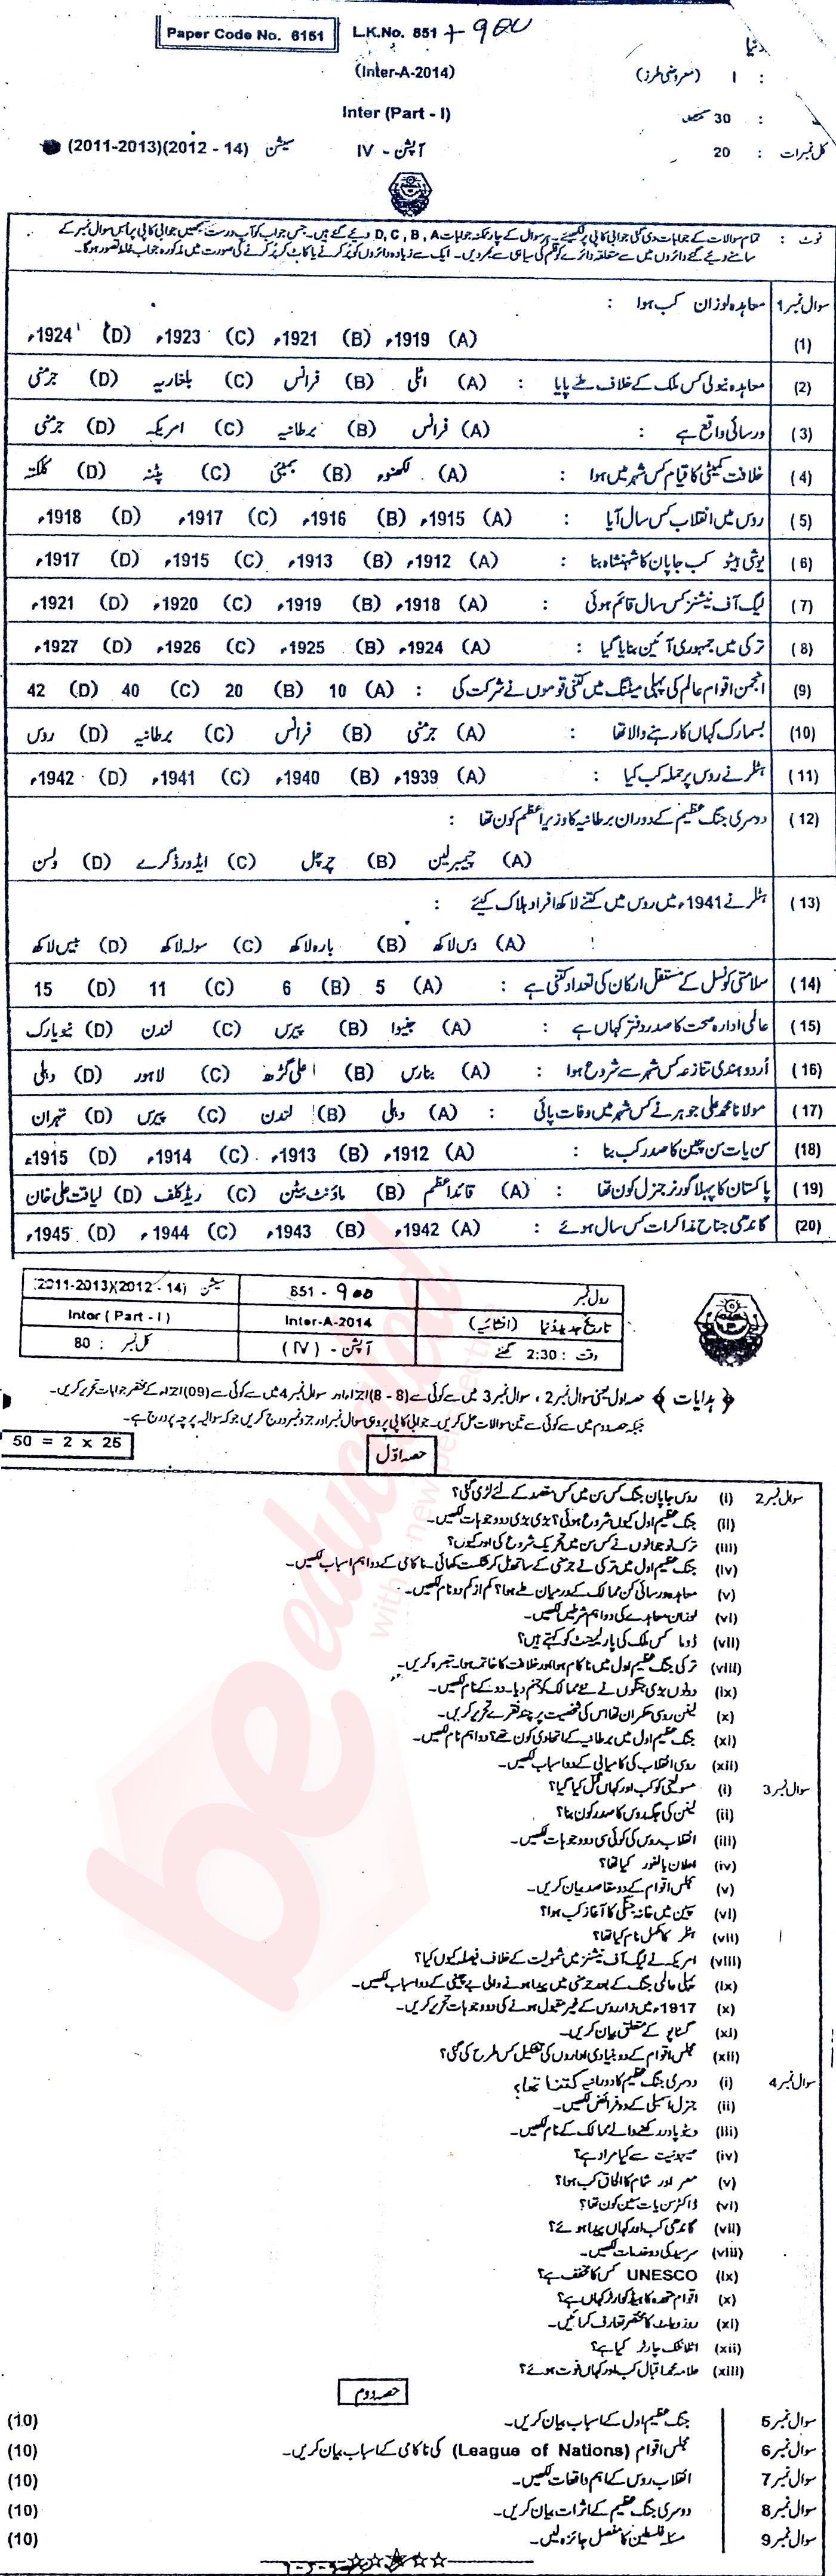 Paper Code No. 6151 L.K.No. 851 + 900
دنیا
(Inter-A-2014) I : (معروضی طرز)
Inter (Part - I) 30 منٹ :
کل نمبرات : 20 آپشن - IV سیشن (2011-2013)(2012 - 14)
نوٹ : تمام سوالات کے جوابات دی گئی جوابی کاپی پر لکھیئے۔ ہر سوال کے چار ممکنہ جوابات D, C, B, A دیئے گئے ہیں۔ جس جواب کو آپ درست سمجھیں جوابی کاپی پر اُس سوال نمبر کے
سامنے دیئے گئے دائروں میں سے متعلقہ دائرے کو قلم کی سیاہی سے بھر دیں۔ ایک سے زیادہ دائروں کو پُر کرنے یا کاٹ کر پُر کرنے کی صورت میں مذکورہ جواب غلط تصور ہوگا۔
سوال نمبر ۱ معاہدہ لوزان کب ہوا :
(1) (A) 1919ء (B) 1921ء (C) 1923ء (D) 1924ء
(2) معاہدہ نیولی کس ملک کے خلاف طے پایا : (A) اٹلی (B) فرانس (C) بلغاریہ (D) جرمنی
(3) ورسائی واقع ہے : (A) فرانس (B) برطانیہ (C) امریکہ (D) جرمنی
(4) خلافت کمیٹی کا قیام کس شہر میں ہوا : (A) لکھنوء (B) بمبئی (C) پٹنہ (D) کلکتہ
(5) روس میں انقلاب کس سال آیا : (A) 1915ء (B) 1916ء (C) 1917ء (D) 1918ء
(6) یوشی ہیٹو کب جاپان کا شہنشاہ بنا : (A) 1912ء (B) 1913ء (C) 1915ء (D) 1917ء
(7) لیگ آف نیشنز کس سال قائم ہوئی : (A) 1918ء (B) 1919ء (C) 1920ء (D) 1921ء
(8) ترکی میں جمہوری آئین بنایا گیا : (A) 1924ء (B) 1925ء (C) 1926ء (D) 1927ء
(9) انجمن اقوام عالم کی پہلی میٹنگ میں کتنی قوموں نے شرکت کی : (A) 10 (B) 20 (C) 40 (D) 42
(10) بسمارک کہاں کا رہنے والا تھا : (A) جرمنی (B) فرانس (C) برطانیہ (D) روس
(11) ہٹلر نے روس پر حملہ کب کیا : (A) 1939ء (B) 1940ء (C) 1941ء (D) 1942ء
(12) دوسری جنگ عظیم کے دوران برطانیہ کا وزیر اعظم کون تھا :
(A) چیمبرلین (B) چرچل (C) ایڈورڈ گرے (D) ولسن
(13) ہٹلر نے 1941ء میں روس میں کتنے لاکھ افراد ہلاک کیئے :
(A) دس لاکھ (B) بارہ لاکھ (C) سولہ لاکھ (D) بیس لاکھ
(14) سلامتی کونسل کے مستقل ارکان کی تعداد کتنی ہے : (A) 5 (B) 6 (C) 11 (D) 15
(15) عالمی ادارہ صحت کا صدر دفتر کہاں ہے : (A) جنیوا (B) پیرس (C) لندن (D) نیویارک
(16) اُردو ہندی تنازعہ کس شہر سے شروع ہوا : (A) بنارس (B) علی گڑھ (C) لاہور (D) دہلی
(17) مولانا محمد علی جوہر نے کس شہر میں وفات پائی : (A) دہلی (B) لندن (C) پیرس (D) تہران
(18) سن یات سن چین کا صدر کب بنا : (A) 1912ء (B) 1913ء (C) 1914ء (D) 1915ء
(19) پاکستان کا پہلا گورنر جنرل کون تھا : (A) قائداعظم (B) ماؤنٹ بیٹن (C) ریڈ کلف (D) لیاقت علی خان
(20) گاندھی جناح مذاکرات کس سال ہوئے : (A) 1942ء (B) 1943ء (C) 1944ء (D) 1945ء
رول نمبر 851 - 900 سیشن (2011-2013)(2012 - 14)
تاریخ جدید دنیا (انشائیہ) Inter-A-2014 Inter (Part - I)
وقت : 2:30 گھنٹے آپشن - (IV) کل نمبر : 80
﴿ ہدایات ﴾ حصہ اول یعنی سوال نمبر 2 ، سوال نمبر 3 میں سے کوئی سے (8 - 8) اجزاء اور سوال نمبر 4 میں سے کوئی سے (09) اجزاء کے مختصر جوابات تحریر کریں۔
جبکہ حصہ دوم میں سے کوئی سے تین سوالات حل کریں۔ جوابی کاپی پر وہی سوال نمبر اور جزو نمبر درج کریں جو کہ سوالیہ پرچہ پر درج ہے۔
حصہ اوّل 50 = 2 x 25
سوال نمبر 2 (i) روس جاپان جنگ کس سن میں کس مقصد کے لئے لڑی گئی؟
(ii) جنگ عظیم اول کیوں شروع ہوئی؟ بڑی بڑی دو وجوہات لکھیں۔
(iii) ترک نوجوانوں نے کس سن میں تحریک شروع کی اور کیوں؟
(iv) جنگ عظیم اول میں ترکی نے جرمنی کے ساتھ مل کر شکست کھائی۔ ناکامی کے دو اہم اسباب لکھیں۔
(v) معاہدہ ورسائی کن ممالک کے درمیان طے ہوا؟ کم از کم دو نام لکھیں۔
(vi) لوزان معاہدے کی دو اہم شرطیں لکھیں۔
(vii) ڈوما کس ملک کی پارلیمنٹ کو کہتے ہیں؟
(viii) ترکی جنگ عظیم اول میں ناکام ہوا اور خلافت کا خاتمہ ہوا۔ تبصرہ کریں۔
(ix) دونوں بڑی جنگوں نے نئے ممالک کو جنم دیا۔ دو کے نام لکھیں۔
(x) لینن روسی حکمران تھا اس کی شخصیت پر چند فقرے تحریر کریں۔
(xi) جنگ عظیم اول میں برطانیہ کے اتحادی کون تھے؟ دو اہم نام لکھیں۔
(xii) روسی انقلاب کی کامیابی کے دو اسباب لکھیں۔
سوال نمبر 3 (i) مسولینی کو کب اور کہاں قتل کیا گیا؟
(ii) لینن کی جگہ روس کا صدر کون بنا؟
(iii) انقلاب روس کی کوئی سی دو وجوہات لکھیں۔
(iv) اعلان بالفور کیا تھا؟
(v) مجلس اقوام کے دو مقاصد بیان کریں۔
(vi) سپین میں خانہ جنگی کا آغاز کب ہوا؟
(vii) ہٹلر کا مکمل نام کیا تھا؟
(viii) امریکہ نے لیگ آف نیشنز میں شمولیت کے خلاف فیصلہ کیوں کیا؟
(ix) پہلی عالمی جنگ کے بعد جرمنی میں پیدا ہونے والی بے چینی کے دو اسباب لکھیں۔
(x) 1917ء میں زار روس کے غیر مقبول ہونے کی دو وجوہات تحریر کریں۔
(xi) گسٹاپو کے متعلق بیان کریں۔
(xii) مجلس اقوام کے دو بنیادی اداروں کی تشکیل کس طرح کی گئی؟
سوال نمبر 4 (i) دوسری جنگ عظیم کا دورانیہ کتنا تھا؟
(ii) جنرل اسمبلی کے دو فرائض لکھیں۔
(iii) ویٹو پاور رکھنے والے ممالک کے نام لکھیں۔
(iv) صیہونیت سے کیا مراد ہے؟
(v) مصر اور شام کا الحاق کب ہوا؟
(vi) ڈاکٹر سن یات سین کون تھا؟
(vii) گاندھی کب اور کہاں پیدا ہوئے؟
(viii) سرسید کی دو خدمات لکھیں۔
(ix) UNESCO کس کا مخفف ہے؟
(x) اقوام متحدہ کا ہیڈ کوارٹر کہاں ہے؟
(xi) روز ویلٹ کا مختصر تعارف کرائیں۔
(xii) اٹلانٹک چارٹر کیا ہے؟
(xiii) علامہ محمد اقبال کب اور کہاں فوت ہوئے؟
حصہ دوم
سوال نمبر 5 جنگ عظیم اول کے اسباب بیان کریں۔ (10)
سوال نمبر 6 مجلس اقوام (League of Nations) کی ناکامی کے اسباب بیان کریں۔ (10)
سوال نمبر 7 انقلاب روس کے اہم واقعات لکھیں۔ (10)
سوال نمبر 8 دوسری جنگ عظیم کے اثرات بیان کریں۔ (10)
سوال نمبر 9 مسئلہ فلسطین کا مفصل جائزہ لیں۔ (10)
be educated
with a new perspective